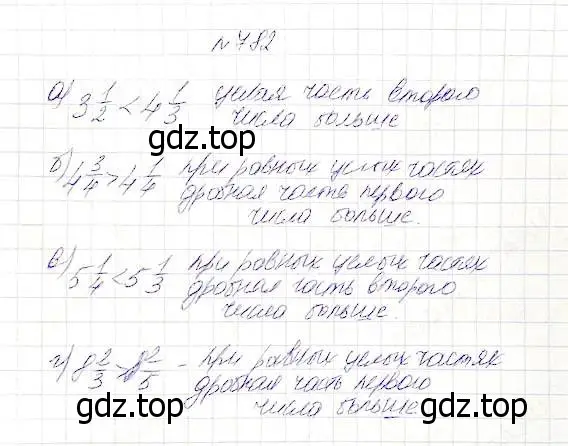 №782
а) 3 1/2 < 4 1/3 целая часть второго
числа больше
gdz.top
б) 4 3/4 > 4 1/4 при равных целых частях
дробная часть первого
gdz.top
числа больше.
в) 5 1/4 < 5 1/3 при равных целых частях
дробная часть второго
gdz.top
числа больше.
г) 8 2/3 > 8 2/5 - при равных целых частях
дробная часть первого
gdz.top
числа больше